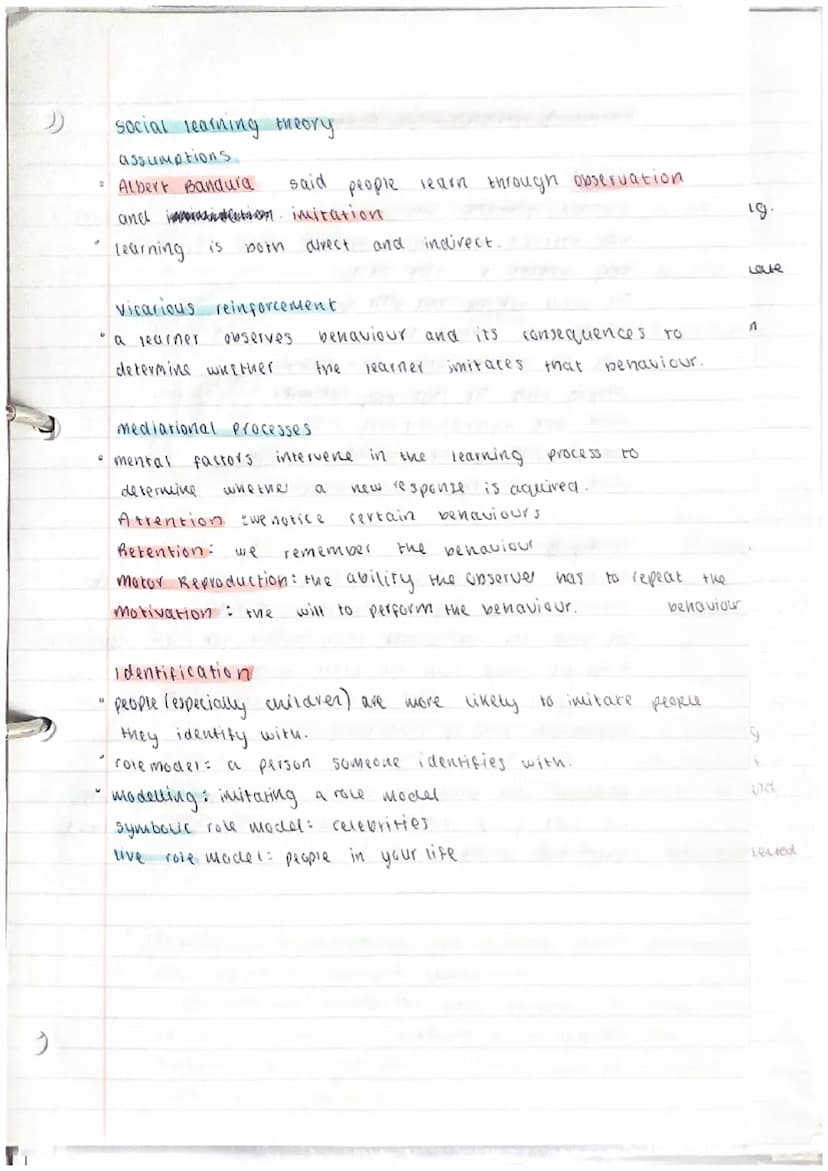 social learning theory
assumptions
• Albert Bandura said people learn through observation
and imitation
• learning is both direct and indirect.
vicarious reinforcement
• a learner observes behaviour and its consequences to
determine whether the learner imitates that behaviour.
mediational processes
• mental factors intervene in the learning process to
determine whether a new response is acquired.
Attention : we notice certain behaviours
Retention: we remember the behaviour
Motor Reproduction: the ability the observer has to repeat the
behaviour
Motivation : the will to perform the behaviour.
Identification
• people (especially children) are more likely to imitate people
they identify with.
• role model: a person someone identifies with.
• modelling: imitating a role model
symbolic role model: celebrities
live role model: people in your life